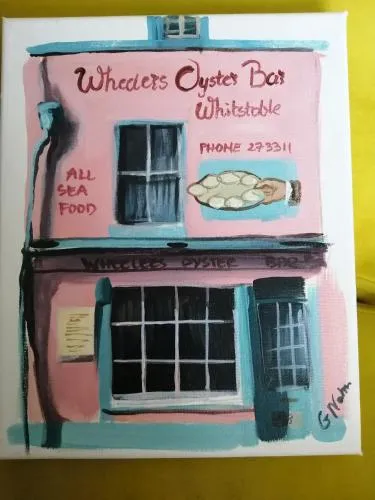 Wheelers Oyster Bar
Whitstable
PHONE 273311
ALL
SEA
FOOD
WHEELERS OYSTER BAR